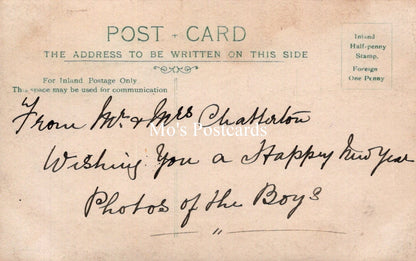 POST CARD
THE ADDRESS TO BE WRITTEN ON THIS SIDE
Inland
Half-penny
Stamp.
Foreign
One Penny
For Inland Postage Only
This space may be used for communication
From Mr. & Mrs Chatterton
Mo's Postcards
Wishing You a Happy New Year
Photos of the Boys